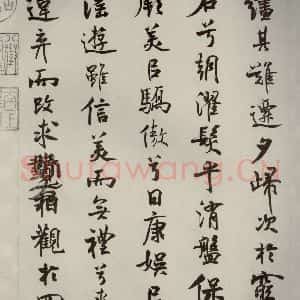 繣其難遷夕歸次於窮
石兮朝濯髮乎洧盤保
厥美㠯驕傲兮日康娛㠯
淫遊雖信美而無禮兮来
違弃而改求覽相觀於四
Shufawang.Cn